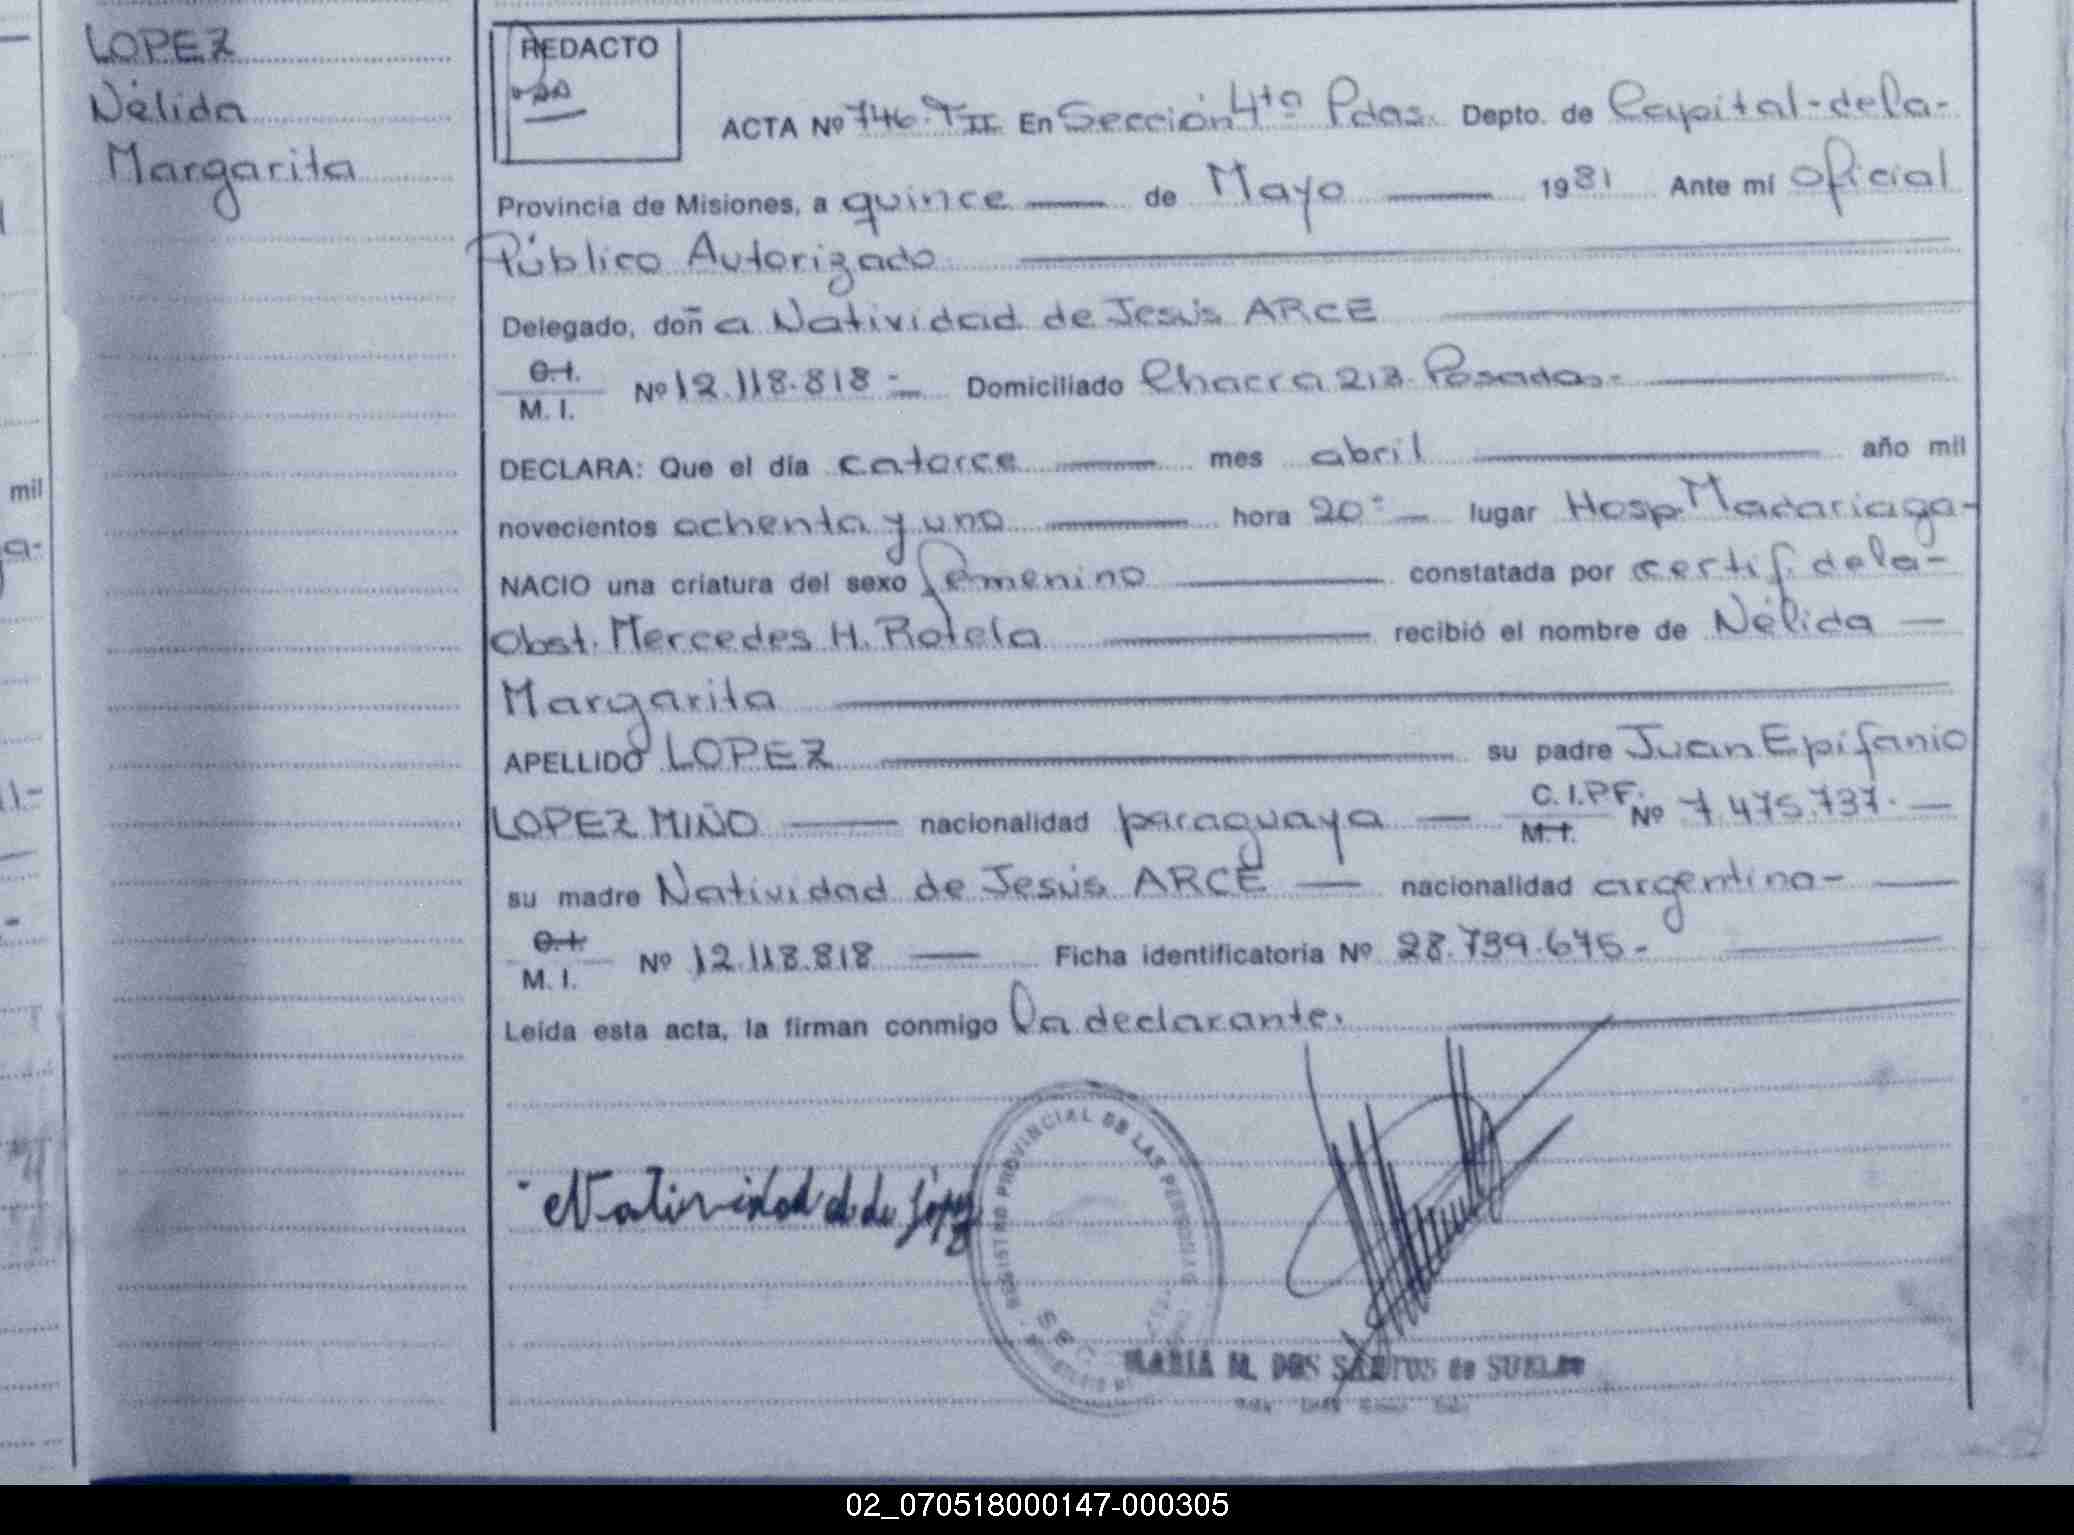 LOPEZ
Nélida
Margarita
REDACTO
ACTA Nº 746. TII En Sección 4ta Pdas. Depto. de Capital-dela-
Provincia de Misiones, a quince de Mayo 1981 Ante mí Oficial
Público Autorizado
Delegado, doña Natividad de Jesús ARCE
C.I.
M. I. Nº 12.118.818 - Domiciliado Chacra 213. Posadas-
DECLARA: Que el día catorce mes abril año mil
novecientos ochenta y uno hora 20 lugar Hosp. Madariaga-
NACIO una criatura del sexo femenino constatada por certif. dela-
Obst. Mercedes H. Rotela recibió el nombre de Nélida
Margarita
APELLIDO LOPEZ su padre Juan Epifanio
LOPEZ MIÑO nacionalidad paraguaya C.I.P.F. Nº 7.475.737.
M.I.
su madre Natividad de Jesús ARCE nacionalidad argentina-
C.I.
M. I. Nº 12.118.818 Ficha identificatoria Nº 28.739.675-
Leída esta acta, la firman conmigo la declarante.
Natividad de López
REGISTRO PROVINCIAL DE LAS PERSONAS
SEC.
MARIA M. DOS SANTOS de
mil
02_070518000147-000305